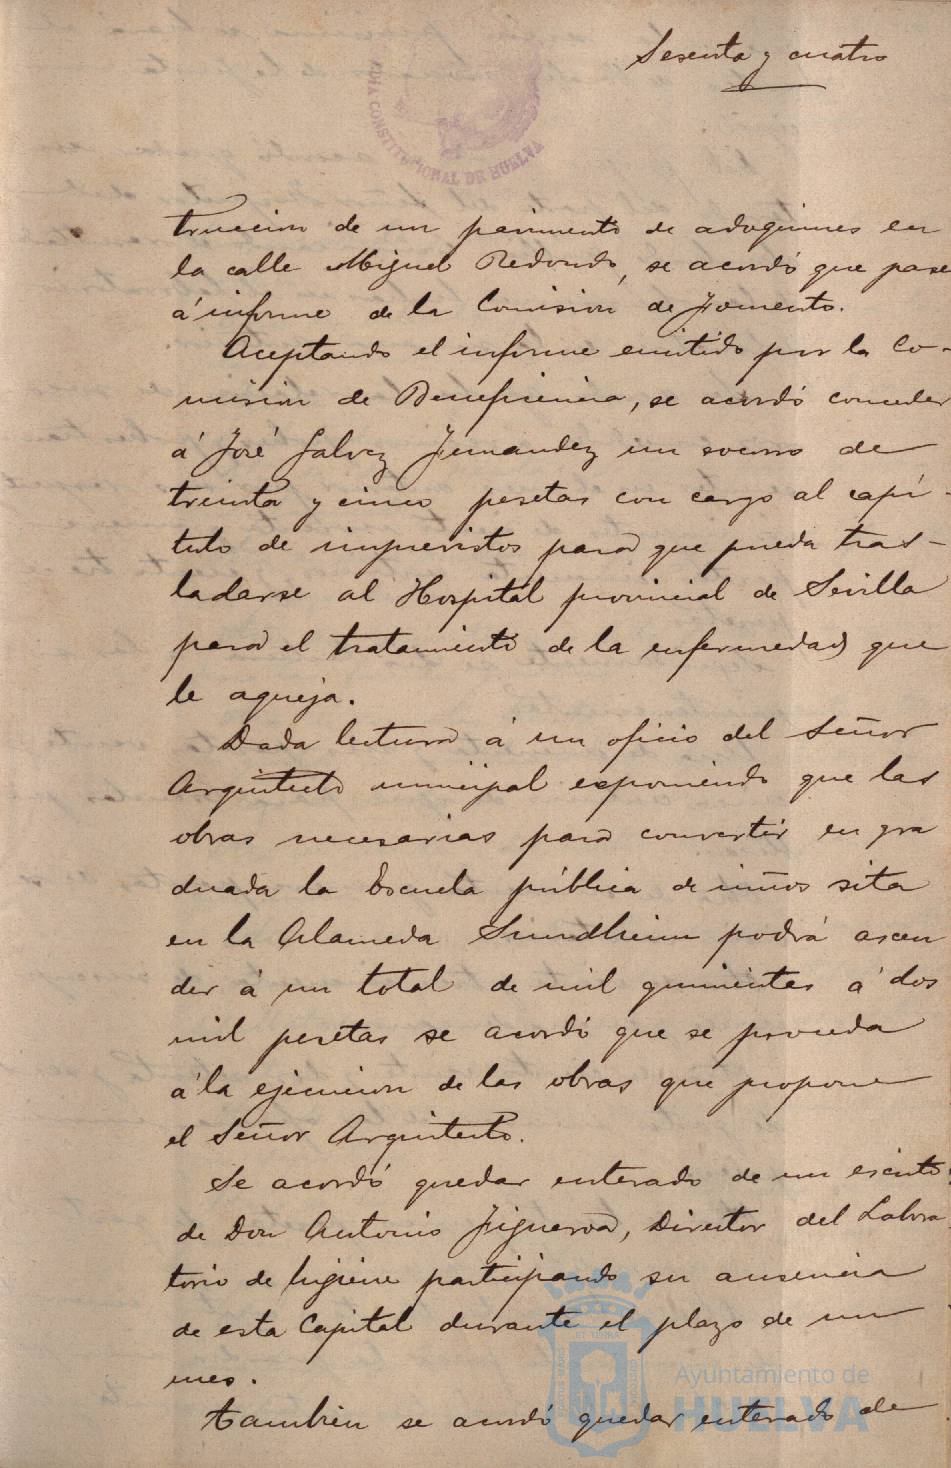 Sesenta y cuatro
DIA CONSTITUCIONAL DE HUELVA
truccion de un pavimento de adoquines en
la calle Miguel Redondo, se acordó que pase
á informe de la Comision de Fomento.
Aceptando el informe emitido por la Co-
mision de Beneficencia, se acordó conceder
á José Galvez Fernandez un socorro de
treinta y cinco pesetas con cargo al capí-
tulo de imprevistos para que pueda tras-
ladarse al Hospital provincial de Sevilla
para el tratamiento de la enfermedad que
le aqueja.
Dada lectura á un oficio del Señor
Arquitecto municipal exponiendo que las
obras necesarias para convertir en gra
duada la Escuela pública de niños sita
en la Alameda Sundheim podrá ascen
der á un total de mil quinientas á dos
mil pesetas se acordó que se proceda
á la ejecucion de las obras que propone
el Señor Arquitecto.
Se acordó quedar enterado de un escrito
de Don Antonio Figueroa, Director del Labora
torio de higiene participando su ausencia
de esta Capital durante el plazo de un
mes.
Tambien se acordó quedar enterado de
Ayuntamiento de
HUELVA